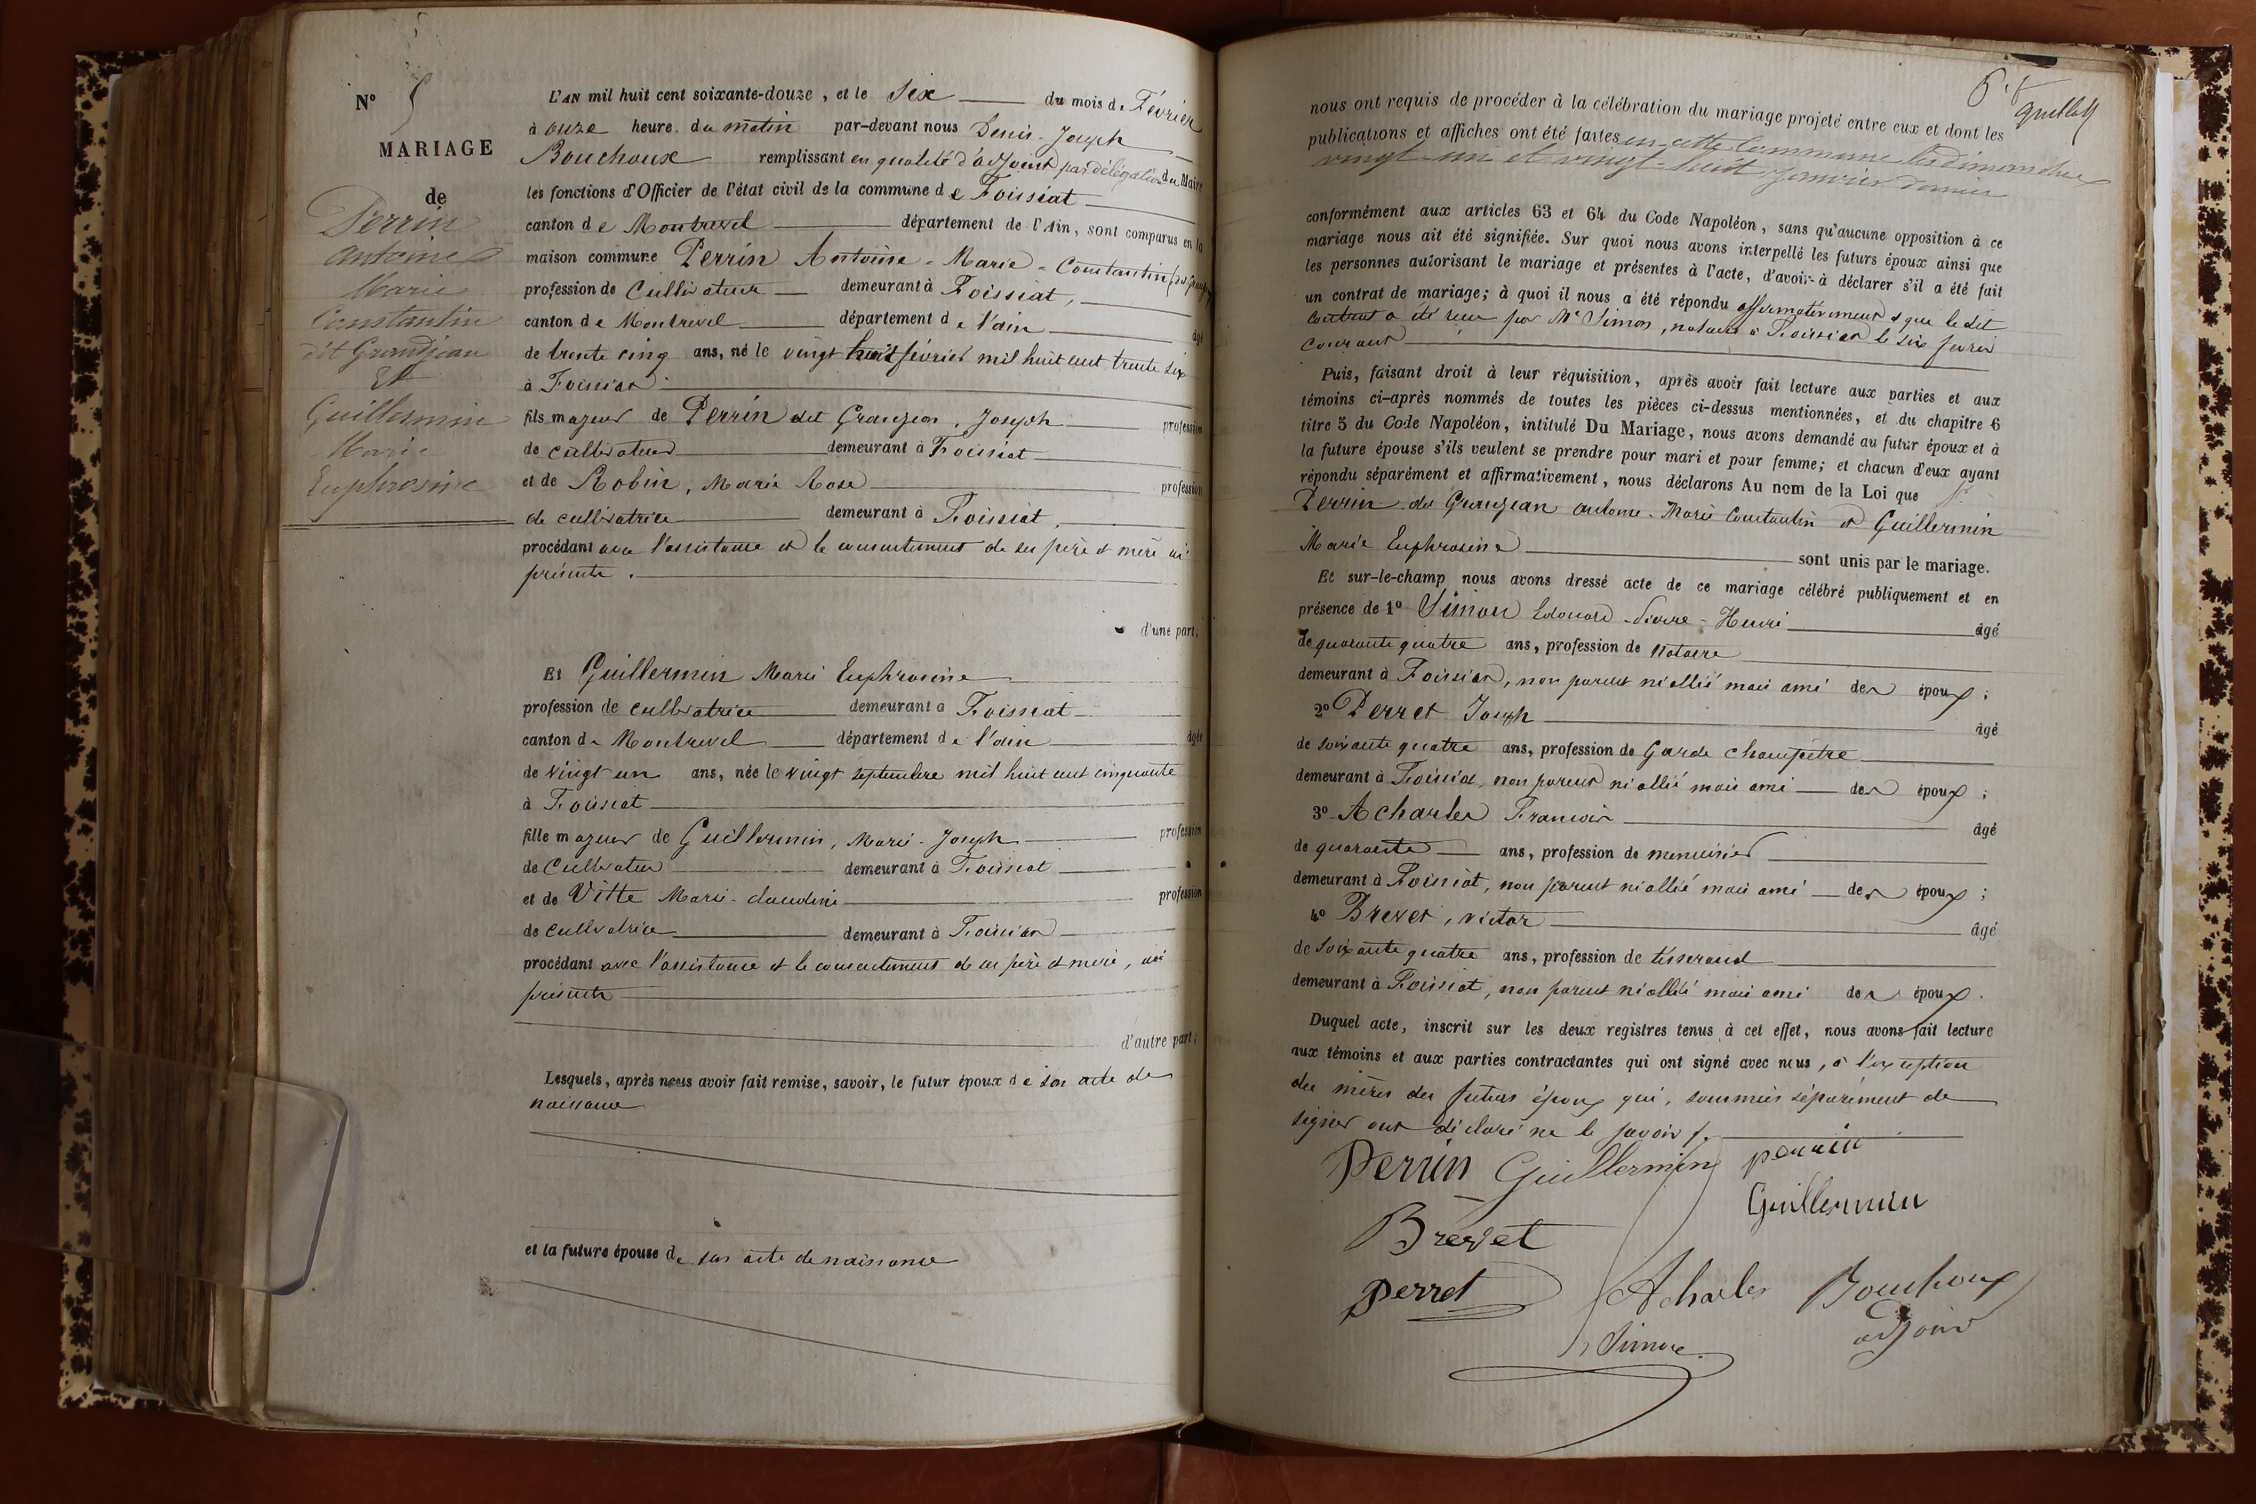 N° 5
MARIAGE
de
Perrin
Antoine
Marie
Constantin
dit Grandjean
Et
Guillermin
Marie
Euphrosine
L'AN mil huit cent soixante-douze, et le Six du mois de Février
à onze heure du matin par-devant nous Denis-Joseph
Bouchoux remplissant en qualité d'adjoint par délégation du Maire
les fonctions d'Officier de l'état civil de la commune de Foissiat
canton de Montrevel département de l'Ain, sont comparus en la
maison commune Perrin Antoine-Marie-Constantin
profession de Cultivateur demeurant à Foissiat,
canton de Montrevel département de l'ain âgé
de trente cinq ans, né le vingt huit février mil huit cent trente six
à Foissiat
fils majeur de Perrin dit Granjean, Joseph profession
de cultivateur demeurant à Foissiat
et de Robin, Marie Rose profession
de cultivatrice demeurant à Foissiat,
procédant avec l'assistance et le consentement de ses père et mère ici
présents.
d'une part,
Et Guillermin Marie Euphrosine
profession de cultivatrice demeurant à Foissiat
canton de Montrevel département de l'ain âgée
de vingt un ans, née le vingt septembre mil huit cent cinquante
à Foissiat
fille majeur de Guillermin, Marie-Joseph profession
de Cultivateur demeurant à Foissiat
et de Vitte Marie-claudine profession
de cultivatrice demeurant à Foissiat
procédant avec l'assistance et le consentement de ses père et mère, ici
présents
d'autre part;
Lesquels, après nous avoir fait remise, savoir, le futur époux de son acte de
naissance
et la future épouse de son acte de naissance
nous ont requis de procéder à la célébration du mariage projeté entre eux et dont les
publications et affiches ont été faites en cette Commune les dimanches
vingt-un et vingt-huit janvier dernier
conformément aux articles 63 et 64 du Code Napoléon, sans qu'aucune opposition à ce
mariage nous ait été signifiée. Sur quoi nous avons interpellé les futurs époux ainsi que
les personnes autorisant le mariage et présentes à l'acte, d'avoir à déclarer s'il a été fait
un contrat de mariage; à quoi il nous a été répondu affirmativement et que le dit
Contrat a été reçu par Me Simon, notaire à Foissiat le six février
courant
Puis, faisant droit à leur réquisition, après avoir fait lecture aux parties et aux
témoins ci-après nommés de toutes les pièces ci-dessus mentionnées, et du chapitre 6
titre 5 du Code Napoléon, intitulé Du Mariage, nous avons demandé au futur époux et à
la future épouse s'ils veulent se prendre pour mari et pour femme; et chacun d'eux ayant
répondu séparément et affirmativement, nous déclarons Au nom de la Loi que
Perrin dit Granjean antoine-Marie Constantin et Guillermin
Marie Euphrosine sont unis par le mariage.
Et sur-le-champ nous avons dressé acte de ce mariage célébré publiquement et en
présence de 1° Simon Edouard-Pierre-Henri âgé
de quarante quatre ans, profession de Notaire
demeurant à Foissiat, non parent ni allié mais ami des époux;
2° Perret Joseph âgé
de soixante quatre ans, profession de Garde champêtre
demeurant à Foissiat, non parent ni allié mais ami des époux;
3° Acharles François âgé
de quarante ans, profession de menuisier
demeurant à Foissiat, non parent ni allié mais ami des époux;
4° Brevet, victor âgé
de soixante quatre ans, profession de tisserand
demeurant à Foissiat, non parent ni allié mais ami des époux.
Duquel acte, inscrit sur les deux registres tenus à cet effet, nous avons fait lecture
aux témoins et aux parties contractantes qui ont signé avec nous, à l'exception
des mères des futurs époux qui, sommées séparément de
signer ont déclaré ne le savoir
Perrin Guillermin perrin
Guillermin
Brevet
Perret Acharles Bouchoux
adjoint
Simon